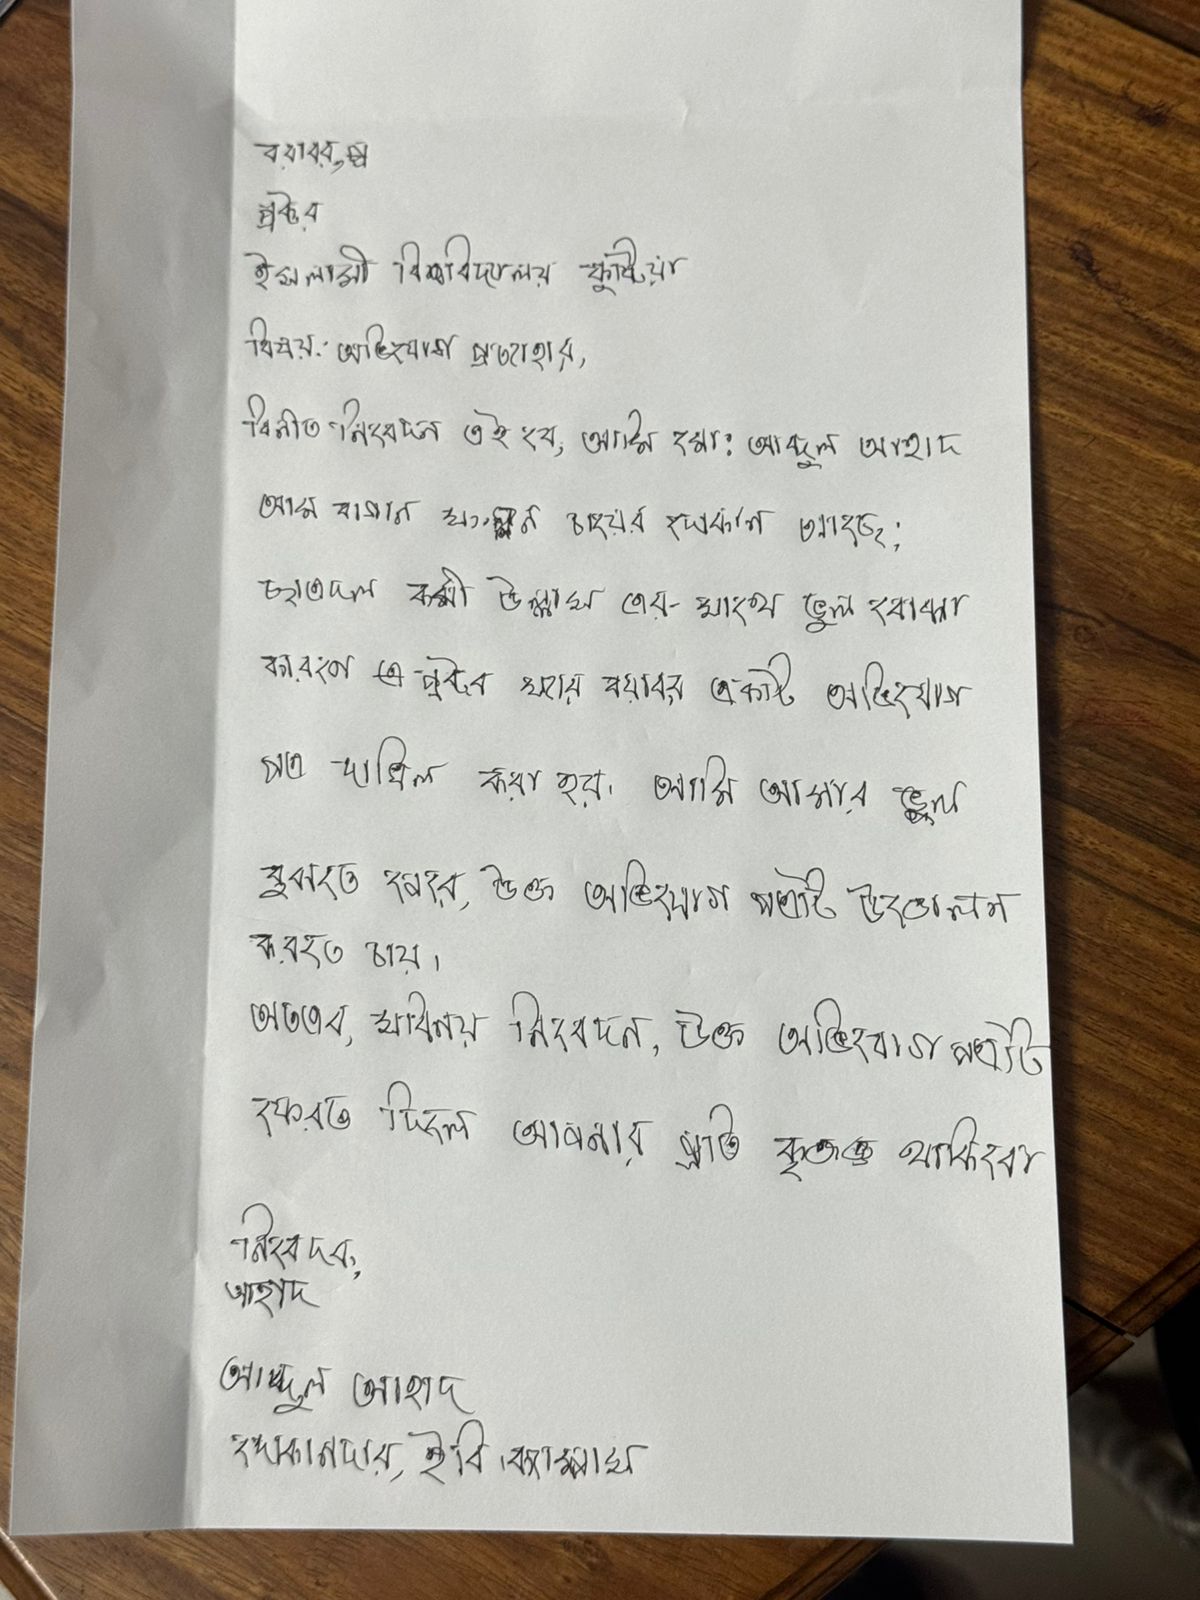 বরাবর,
প্রক্টর
ইসলামী বিশ্ববিদ্যালয় কুষ্টিয়া
বিষয়: অভিযোগ প্রত্যাহার,
বিনীত নিবেদন এই যে, আমি মো: আব্দুল আহাদ
আম বাগান চায়ের দোকান আছে;
ছাত্রদল কর্মী উল্লাস এর সাথে ভুল বোঝা
কারণে প্রক্টর স্যার বরাবর একটি অভিযোগ
পত্র দাখিল করা হয়। আমি আমার ভুল
বুঝতে পেরে, উক্ত অভিযোগ পত্রটি উত্তোলন
করতে চায়।
অতএব, সবিনয় নিবেদন, উক্ত অভিযোগ পত্রটি
ফেরত দিলে আপনার প্রতি কৃতজ্ঞ থাকিবো
নিবেদক,
আহাদ
আব্দুল আহাদ
দোকানদার, ইবি ক্যাম্পাস